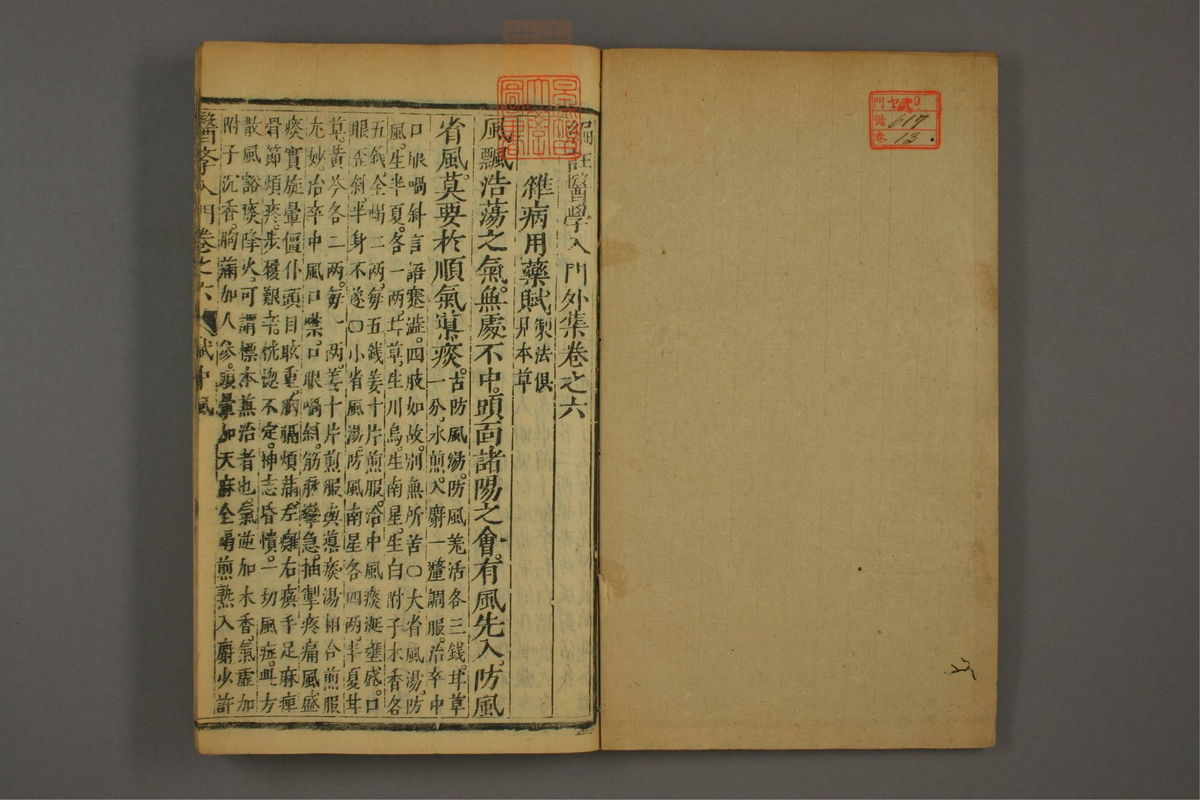 編註醫學入門外集卷之六
雜病用藥賦 製法俱見本草
風飄浩蕩之氣。無處不中。頭面諸陽之會。有風先入。防風
省風。莫要於順氣導痰。古防風湯。防風羌活各三錢。甘草一分。水煎。入麝一釐調服。治卒中
口眼喎斜。言語蹇澁。四肢如故。別無所苦〇大省風湯。防
風。生半夏。各一兩。甘草。生川烏。生南星。生白附子。木香各
五錢。全蝎二兩。每五錢。姜十片煎服。治中風痰涎壅盛。口
眼歪斜。半身不遂〇小省風湯。防風南星各四兩。半夏甘
草。黃芩各二兩。每一兩。姜十片煎服。與導痰湯相合煎服
尤妙。治卒中風口噤。口眼喎斜。筋脈攣急。抽掣疼痛。風盛
痰實。旋暈僵仆。頭目眩重。胸膈煩滿。左癱右瘓。手足麻痺
骨節煩疼。步履艱辛。恍惚不定。神志昏憒。一切風症。此方
散風豁痰降火。可謂標本兼治者也。氣逆加木香。氣虛加
附子沉香。胸滿加人參。頭暈加天麻全蝎。煎熟入麝少許
醫學入門卷之六 賦中風
門 セ 武 9
號 617
卷 13